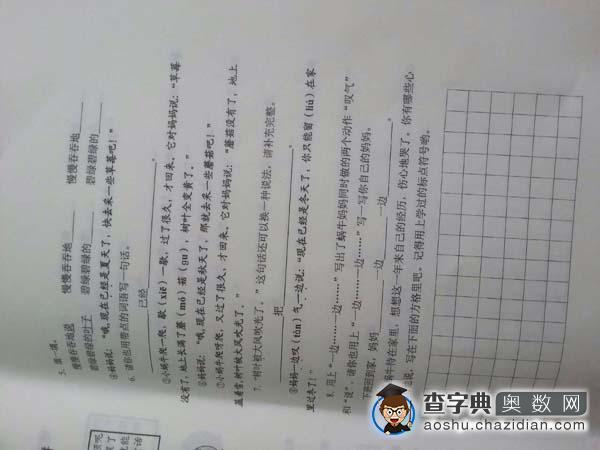 5. 读一读。
慢慢吞吞地说 慢慢吞吞地 慢慢吞吞地
碧绿碧绿的叶子 碧绿碧绿的 碧绿碧绿的
④妈妈说:“哦,现在已经是夏天了,快去采一些草莓吧!”
6. 请你也用带点的词语写一句话。
已经 。
①小蜗牛爬一爬,歇(xiē)一歇,过了很久,才回来,它对妈妈说:“草莓
没有了,地上长满了蘑(mó)菇(gu),树叶全变黄了。”
②妈妈说:“哦,现在已经是秋天了,那就去采一些蘑菇吧!”
③小蜗牛爬呀爬,又过了很久,才回来,它对妈妈说:“蘑菇没有了,地上
盖着雪,树叶被大风吹光了。”
7. “树叶被大风吹光了。”这句话还可以换一种说法,请补充完整。
把 。
⑤妈妈一边叹(tàn)气一边说:“现在已经是冬天了,你只能留(liú)在家
里过冬了!”
8. 用上“一边……一边……”写出了蜗牛妈妈同时做的两个动作“叹气”
和“说”,请你也用上“一边……一边……”写一写你自己的妈妈。
下班回到家,妈妈 一边 一边 。
蜗牛待在家里,想想这一年来自己的经历,伤心地哭了。你有哪些心
说,写在下面的方格里吧,记得用上学过的标点符号哟。
查字典奥数网
aoshu.chazidian.com